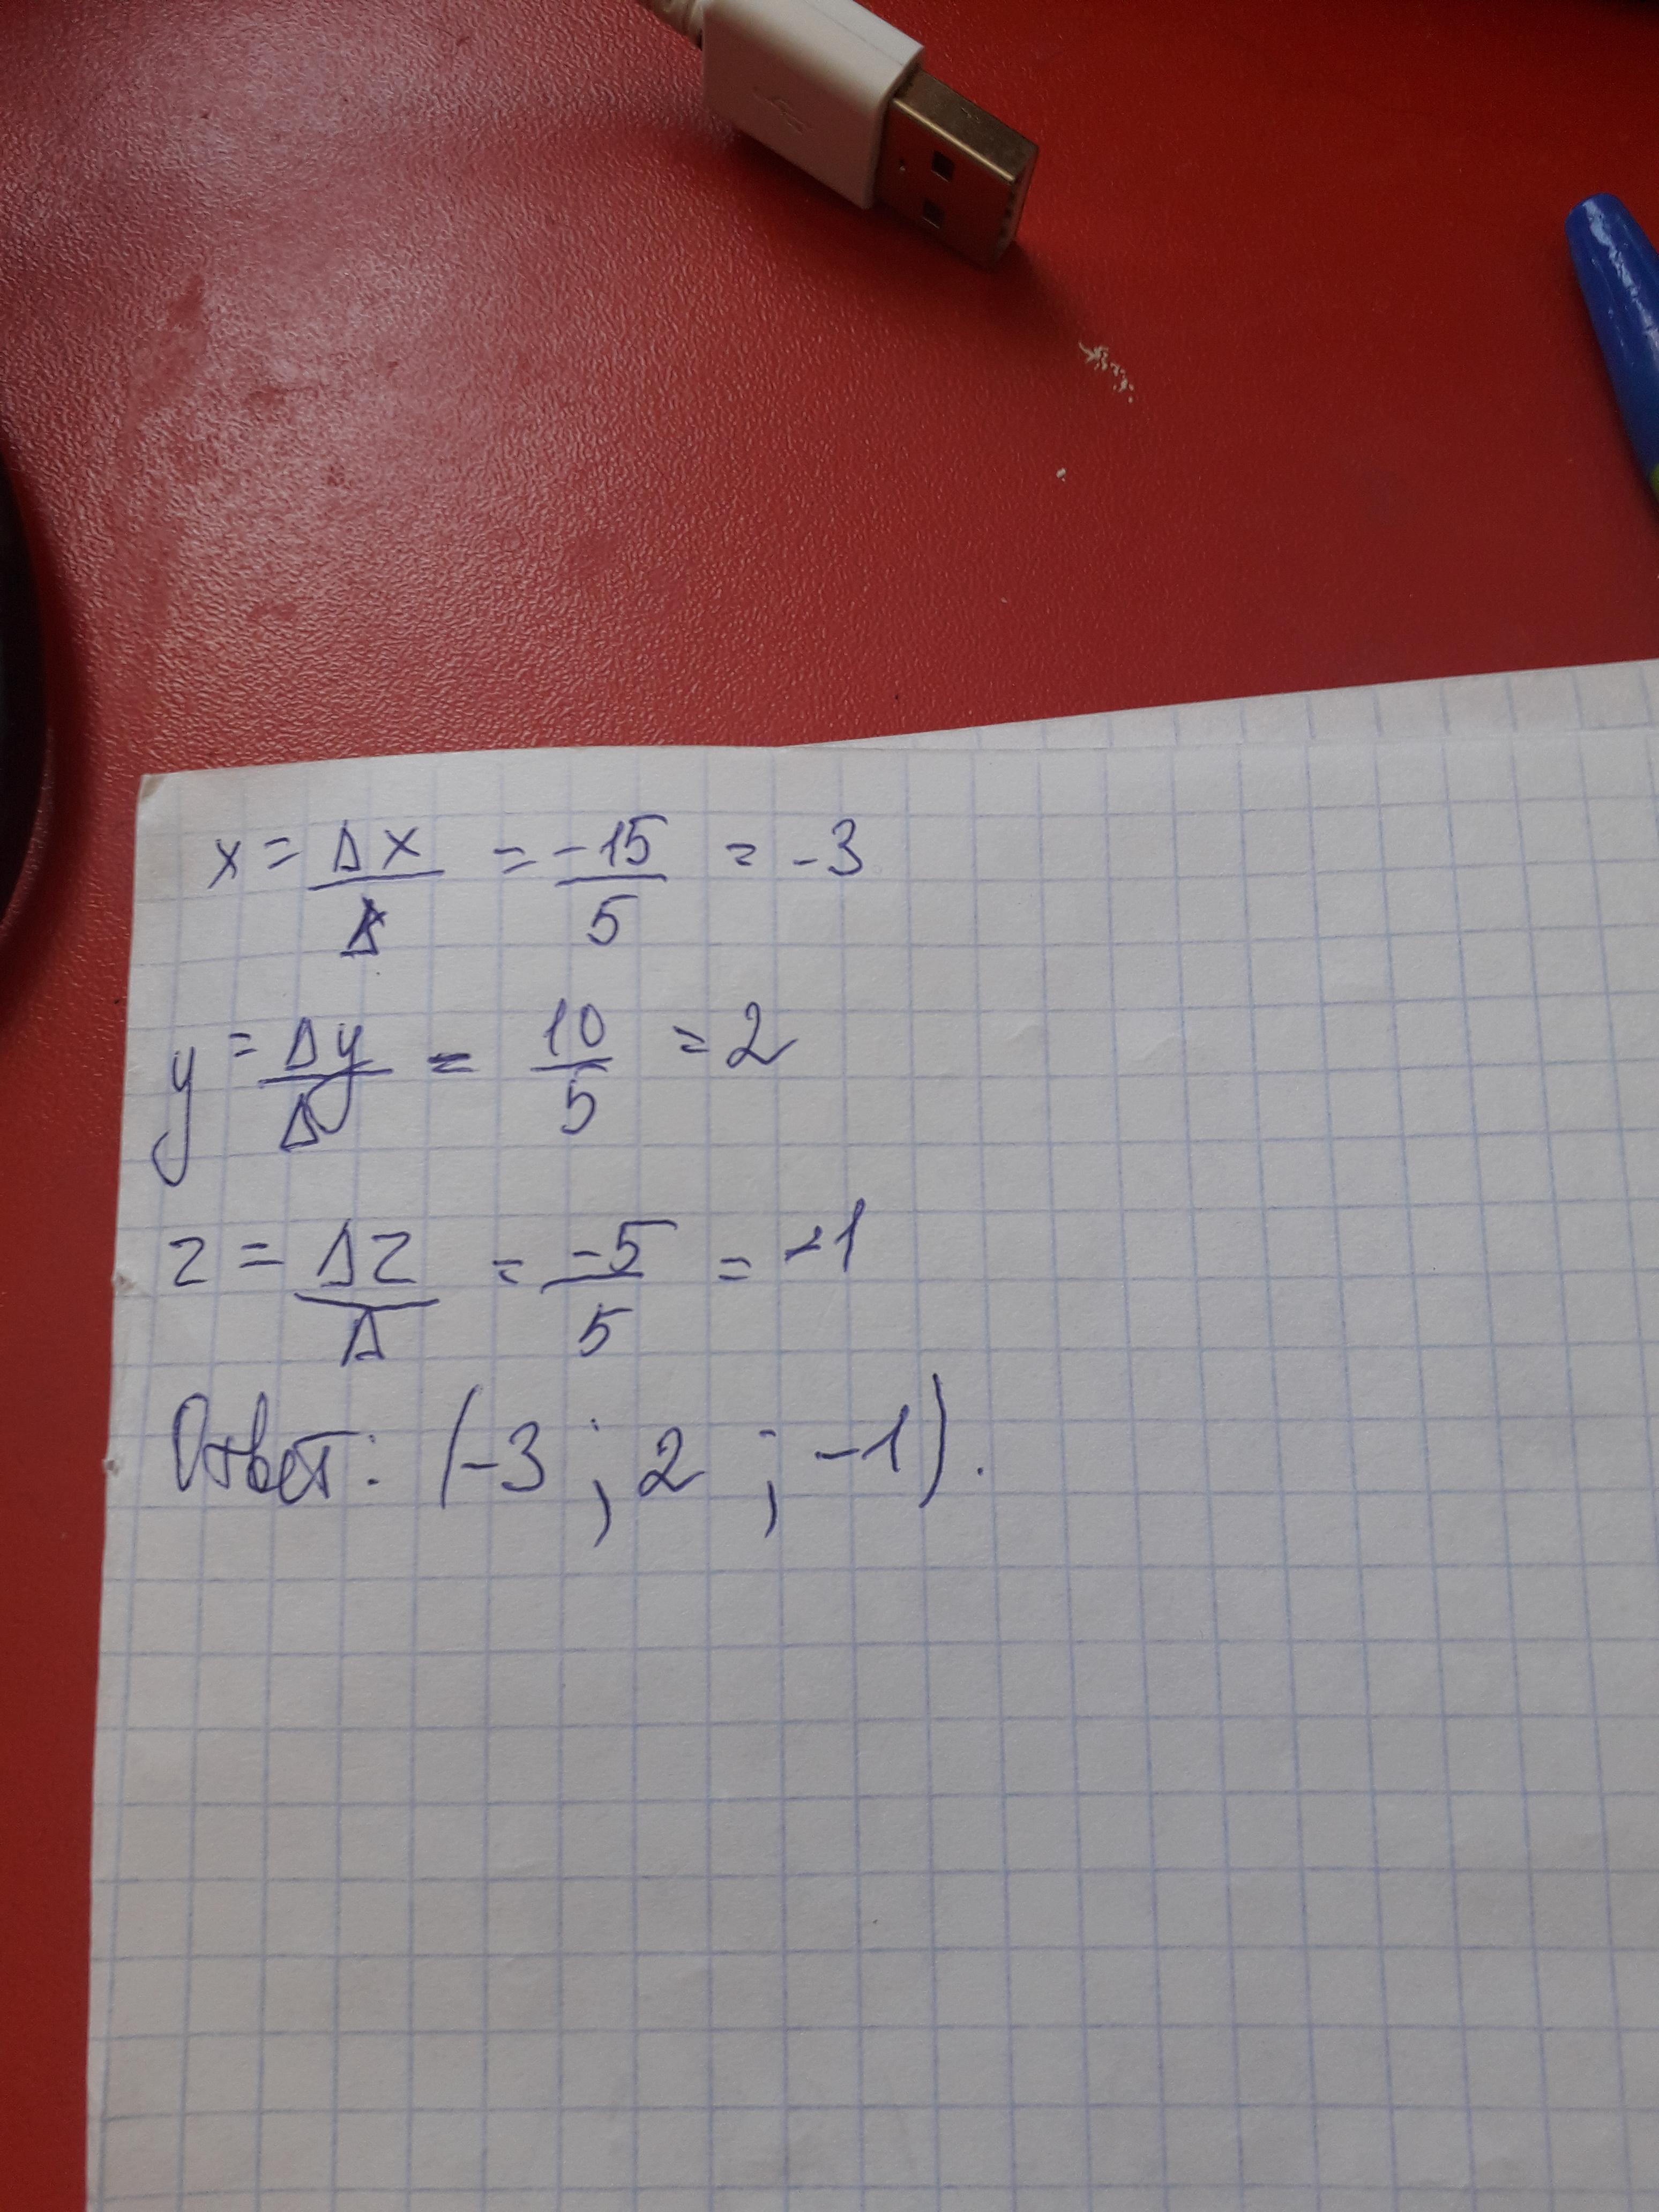 x = Δx / Δ = -15 / 5 = -3
y = Δy / Δ = 10 / 5 = 2
z = Δz / Δ = -5 / 5 = -1
Ответ: (-3 ; 2 ; -1).